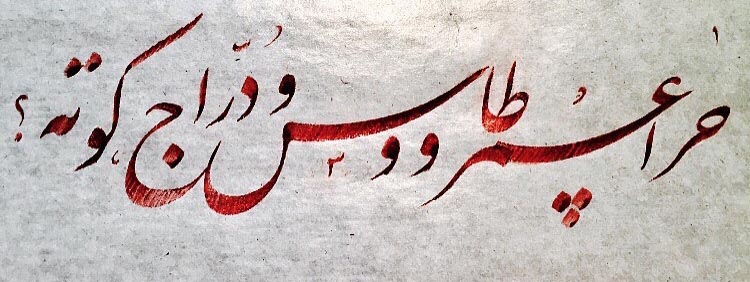 چرا عُمر طاووس و دُرّاج کوته؟